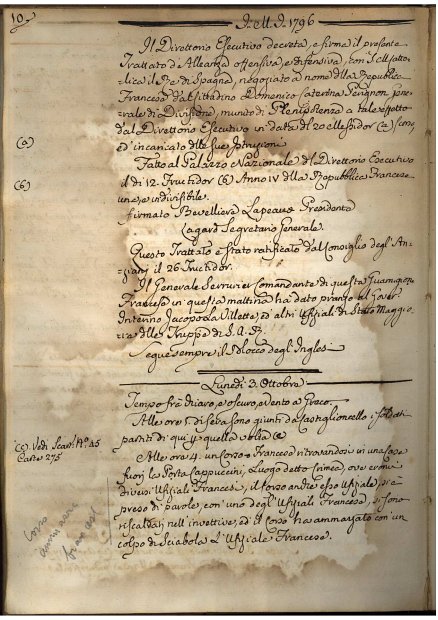 10
1796
Il Direttorio Esecutivo decreta, e firma il presente
Trattato d'Alleanza offensiva, e difensiva, con S. M. Catto-
lica il Re di Spagna, negoziato a nome della Repubblica
Francese dal Cittadino Domenico Caterina Perignon Gene-
rale di Divisione, munito di Plenipotenza a tale effetto
dal Direttorio Esecutivo in data del 20 Messidor (a)
ed incaricato delle sue Istruzioni
(a)
Fatto al Palazzo Nazionale del Direttorio Esecutivo
(b)
il dì 12 Fructidor (b) Anno IV della Repubblica Francese
una, e indivisibile.
firmato Revelliere Lepeaux Presidente
Lagard Segretario Generale.
Questo Trattato è stato ratificato dal Consiglio degl'An-
ziani il 26 Fructidor.
Il Generale Serrurier Comandante di questa Guarnigione
Francese in questa mattina ha dato pranzo al Gover.
Interino Jacopo de La Villette, ed altri Uffiziali di Stato Maggio-
re delle Truppe di S. A. R.
Segue sempre il Blocco degl'Inglesi
Lunedì 3. Ottobre
Tempo frà chiaro, e oscuro, e vento a Greco.
Alle ore di sera sono giunti da Castiglioncello i soldati
partiti di qui a quella volta (c)
(c) Vedi Scar. N.° 45
Carte 275
Alle ore 4. un Corso Francese ritrovandosi in una Casa
fuori la Porta Cappuccini, Luogo detto Crimea, ove erano
diversi Uffiziali Francesi, il Corso anche esso Uffiziale, si è
preso di parole, con uno degl'Uffiziali Francesi, si sono
riscaldati nell'invettive, ed il Corso ha ammazzato con un
colpo di Sciabola L'Uffiziale Francese.
Corso
ammazza
francese